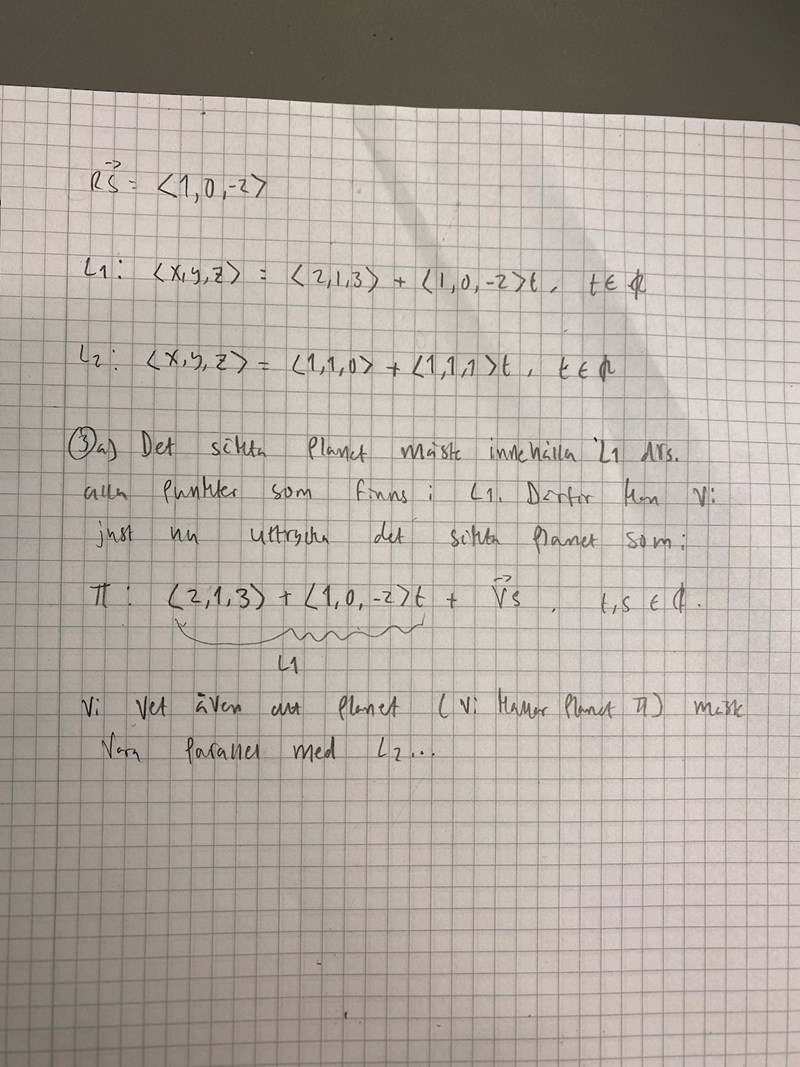 RS⃗ = <1,0,-2>
L1: <x,y,z> = <2,1,3> + <1,0,-2>t, t∈ℝ
L2: <x,y,z> = <1,1,0> + <1,1,1>t, t∈ℝ
③a) Det sökta planet måste innehålla L1 dvs.
alla punkter som finns i L1. Därför kan vi
just nu uttrycka det sökta planet som:
π: <2,1,3> + <1,0,-2>t + v⃗s, t,s ∈ ℝ.
L1
Vi vet även att planet (vi kallar planet π) måste
vara parallell med L2...